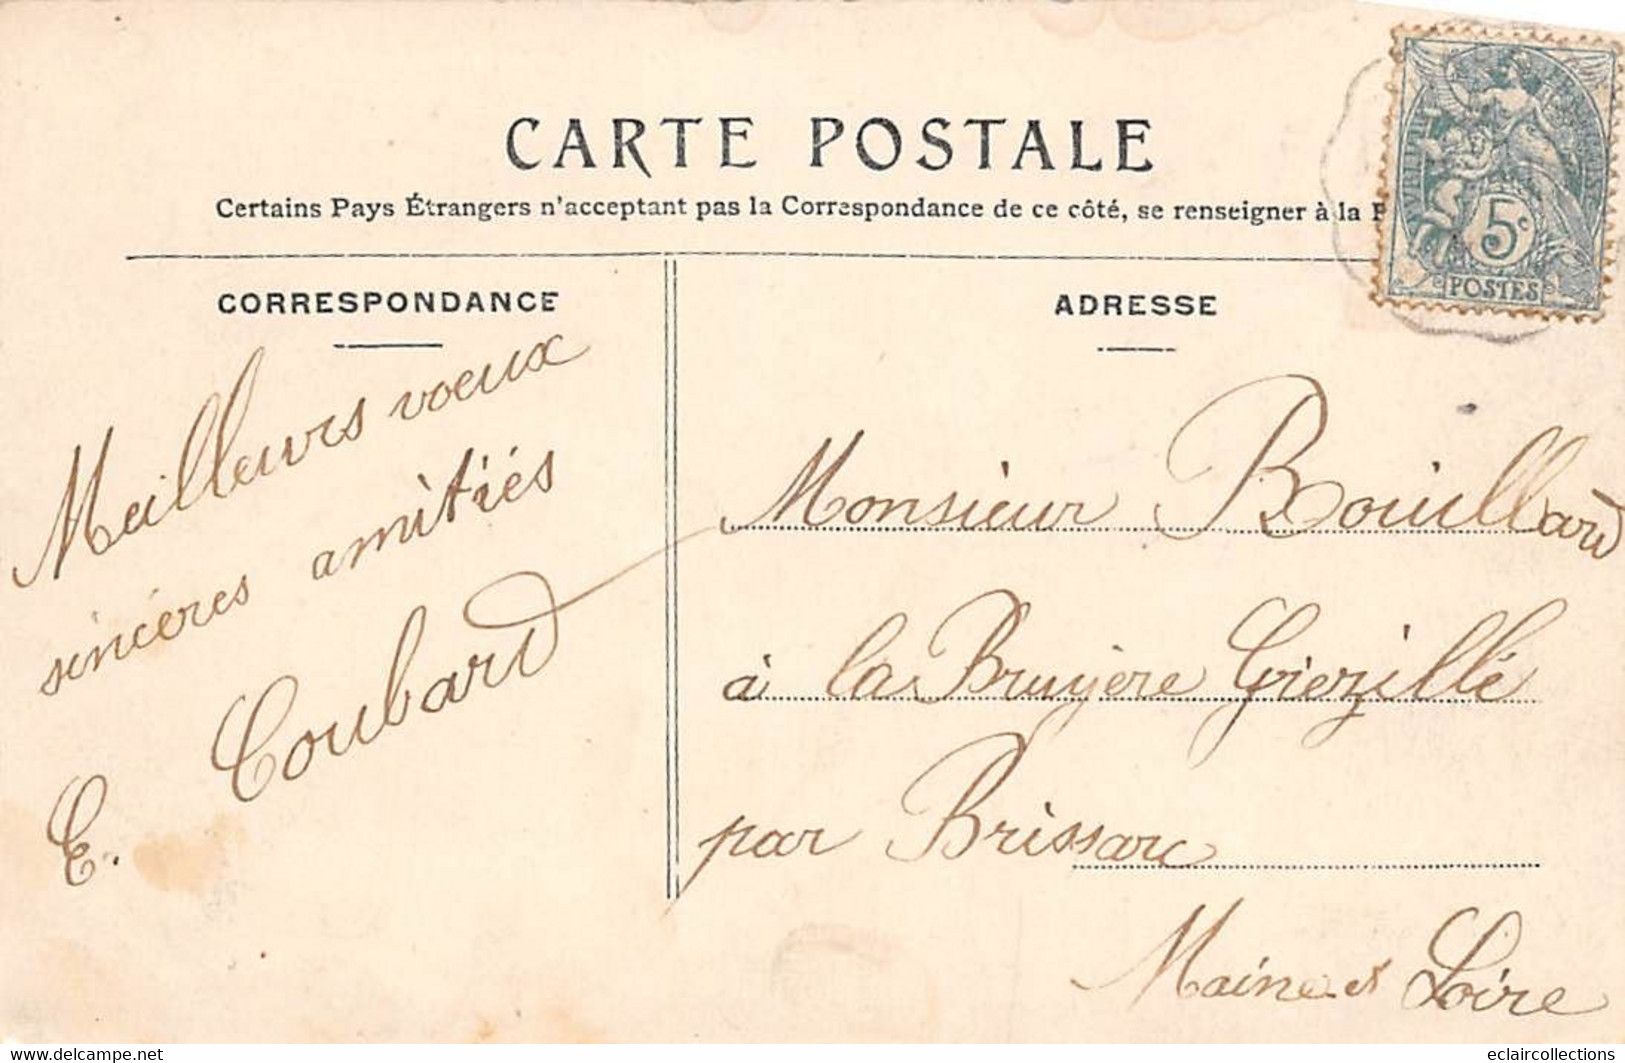 CARTE POSTALE
Certains Pays Étrangers n'acceptent pas la Correspondance de ce côté, se renseigner à la
CORRESPONDANCE
Meilleurs voeux
sincères amitiés
E. Coubard
ADRESSE
Monsieur Bouillard
à la Bruyère Grézillé
par Brissac
Maine et Loire
5c
POSTES
www.delcampe.net
eclaircollections